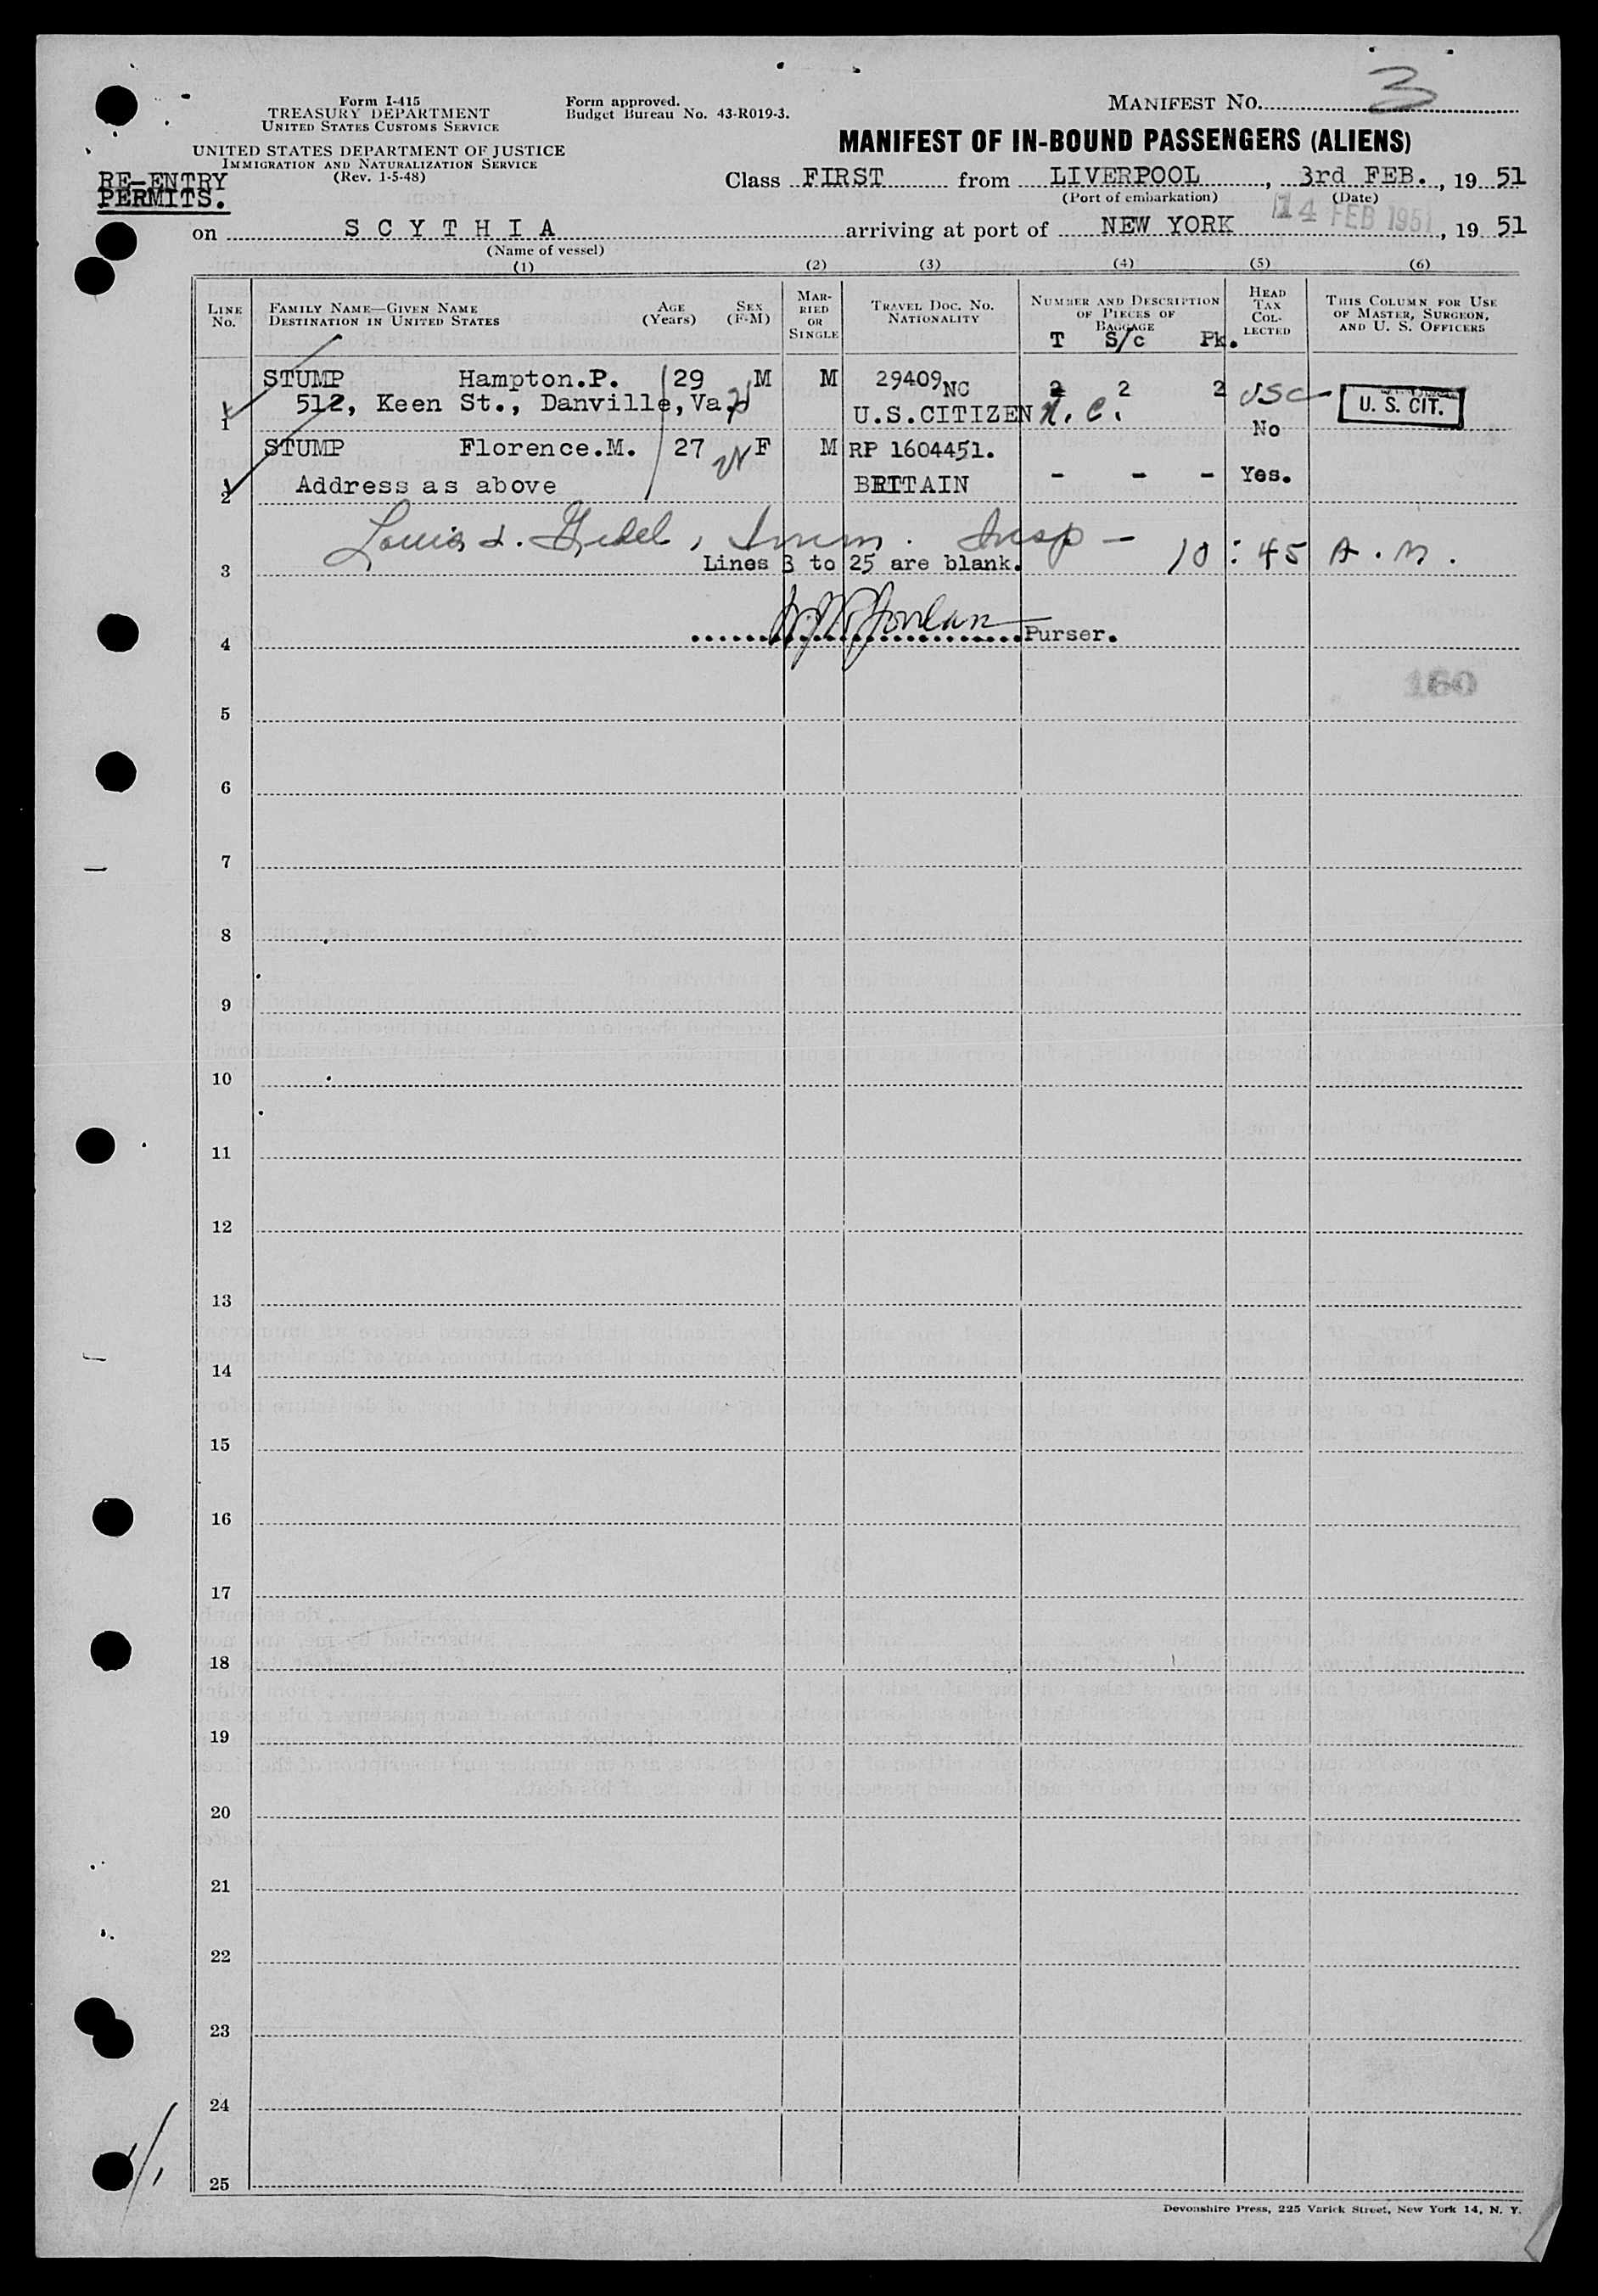 Form I-415
TREASURY DEPARTMENT
UNITED STATES CUSTOMS SERVICE
UNITED STATES DEPARTMENT OF JUSTICE
IMMIGRATION AND NATURALIZATION SERVICE
(Rev. 1-5-48)
Form approved.
Budget Bureau No. 43-R019-3.
MANIFEST NO. 3
MANIFEST OF IN-BOUND PASSENGERS (ALIENS)
RE-ENTRY
PERMITS.
Class FIRST from LIVERPOOL, 3rd FEB., 19 51
(Port of embarkation) (Date)
14 FEB 1951
on S C Y T H I A arriving at port of NEW YORK, 19 51
(Name of vessel)
(1) (2) (3) (4) (5) (6)
LINE No. FAMILY NAME—GIVEN NAME DESTINATION IN UNITED STATES AGE (Years) SEX (F-M) MARRIED OR SINGLE TRAVEL DOC. NO. NATIONALITY NUMBER AND DESCRIPTION OF PIECES OF BAGGAGE HEAD TAX COLLECTED THIS COLUMN FOR USE OF MASTER, SURGEON, AND U. S. OFFICERS
T S/c Pk.
STUMP Hampton.P. 29 M M 29409 NC 2 2 2 USC U. S. CIT.
1 512, Keen St., Danville, Va. U.S.CITIZEN No
STUMP Florence.M. 27 F M RP 1604451.
2 Address as above BRITAIN - - - Yes.
Louis Insp - 10:45 A.M.
3 Lines 3 to 25 are blank.
4 Purser.
160
5
6
7
8
9
10
11
12
13
14
15
16
17
18
19
20
21
22
23
24
25
Devonshire Press, 225 Varick Street, New York 14, N. Y.